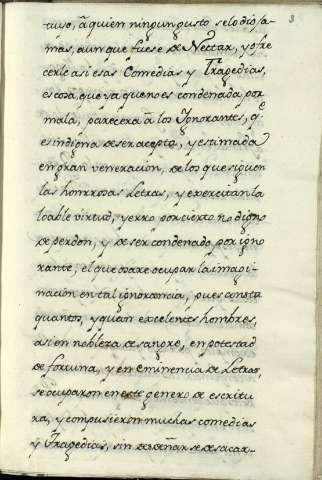 3
tuyo, â quien ningun gusto se lo dio ja-
mas, aun que fuese de Nectar, y ofre
cerle asi esas Comedias y Tragedias,
es cosa, que ya que no es condenada por
mala, parecera â los Ignorantes, qᵉ
es indigna de ser acepto, y estimada
en gran veneracion, de los que siguen
las honrrosas letras, y exercitan la
loable virtud, y erro por cierto no digno
de perdon, y de ser condenado por igno
rante, el que osare ocupar la imagi-
nacion en tal ignorancia, pues consta
quantos, y quan excelentes hombres,
asi en nobleza de sangre, en potestad
de fortuna, y en eminencia de Letras,
se ocuparon en este genero de escritu
ra, y compusieron muchas comedias
y Tragedias, sin desdeñarse de sacar-